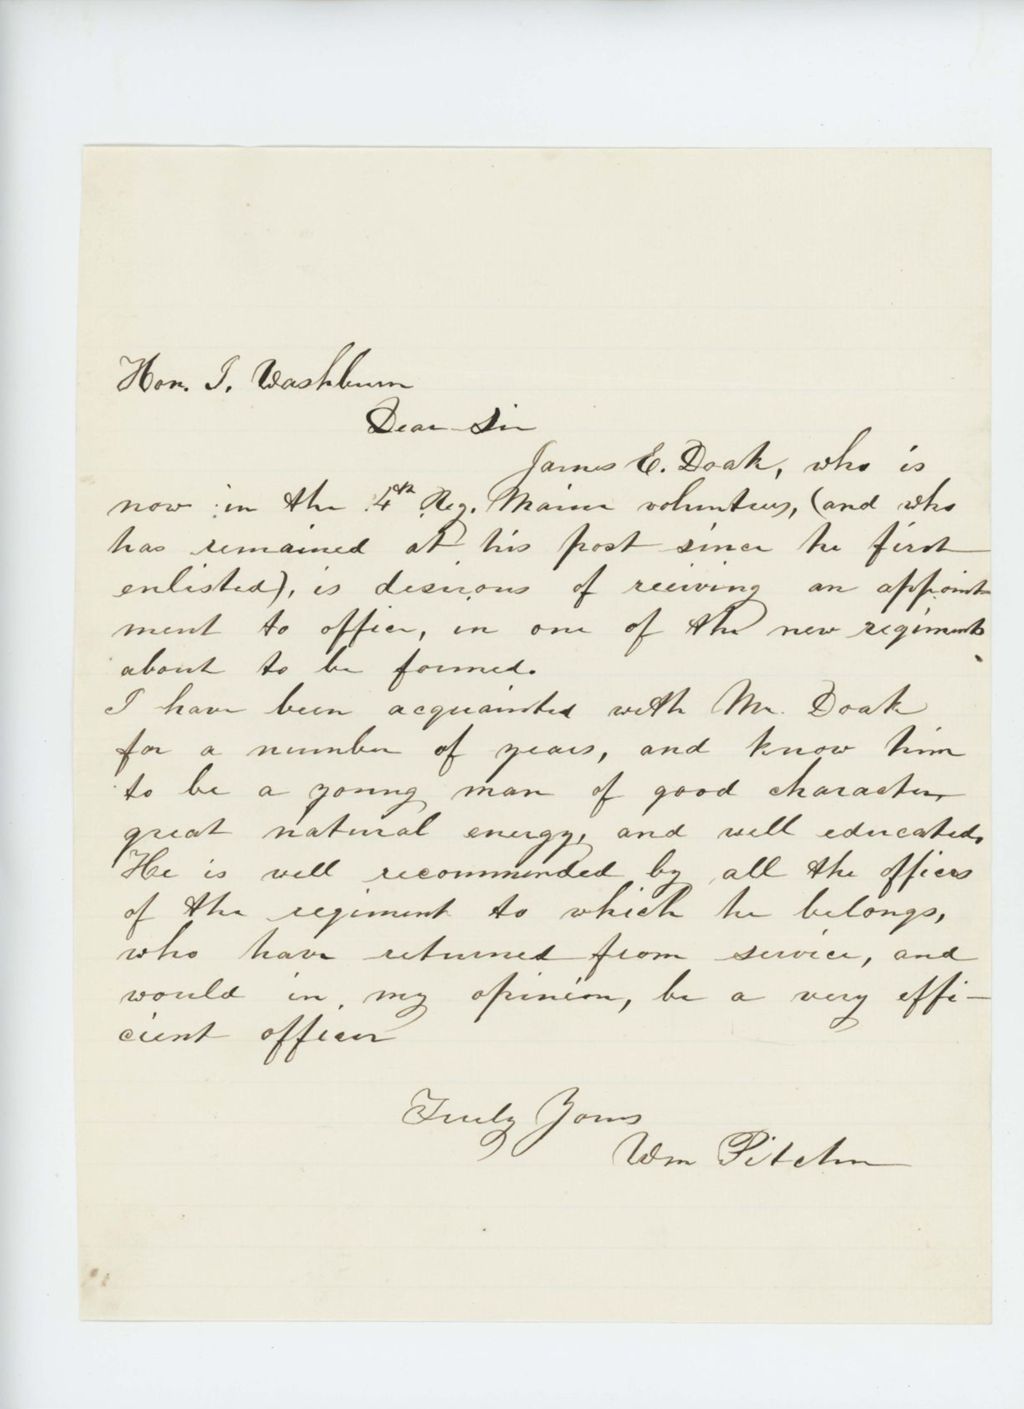 Hon. I. Washburn
Dear Sir
James E. Doak, who is
now in the 4th Reg. Maine volunteers, (and who
has remained at his post since he first
enlisted), is desirous of reciving an appoint
ment to office, in one of the new regiments
about to be formed.
I have been acquainted with Mr. Doak
for a number of years, and know him
to be a young man of good character,
great natural energy, and well educated.
He is well recommended by all the officers
of the regiment to which he belongs,
who have returned from service, and
would in my opinion, be a very effi-
cient officer
Truly Yours
Wm Pitcher